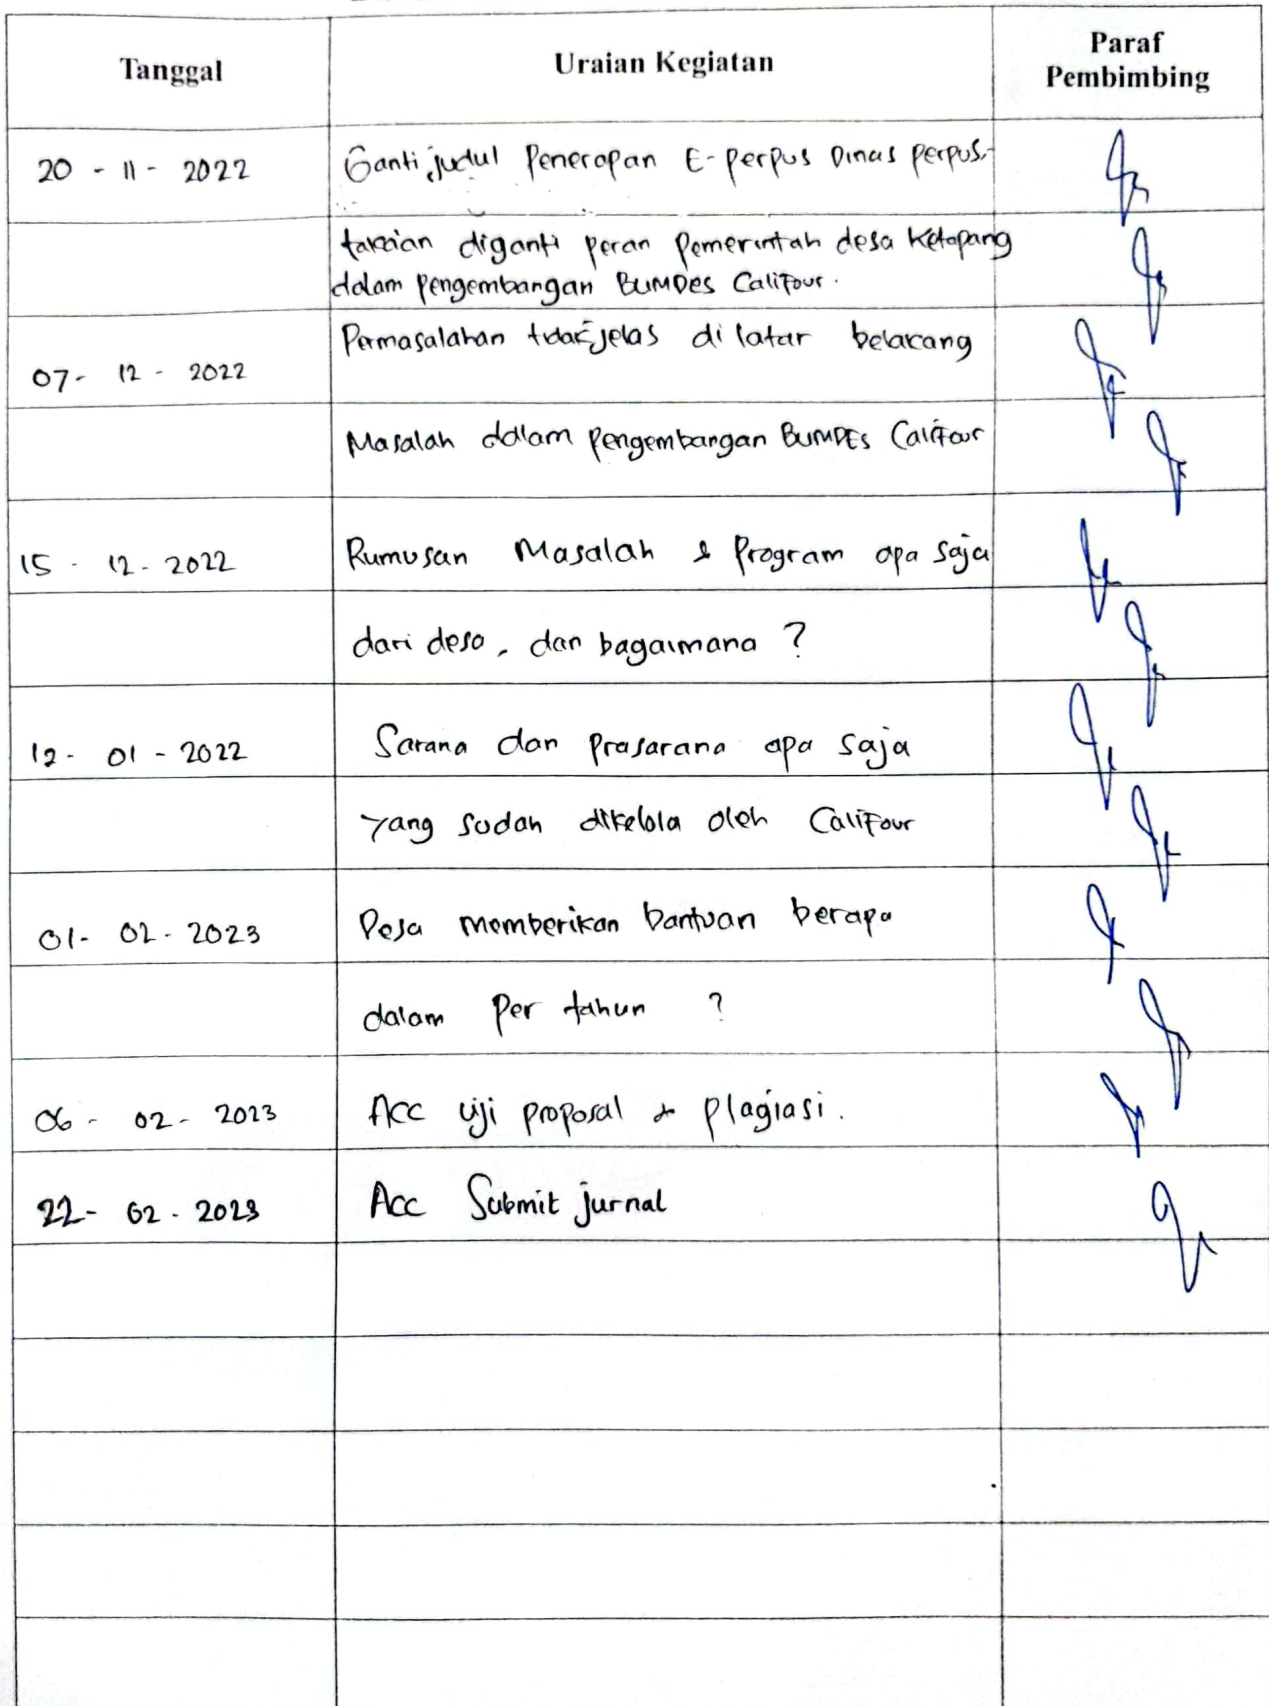 Tanggal
Uraian Kegiatan
Paraf
Pembimbing
20 - 11 - 2022
Ganti judul Penerapan E-perpus Dinas perpus-
takaian diganti peran pemerintah desa Ketapang
dalam pengembangan BUMDes CaliFour.
07- 12 - 2022
Permasalahan tidak jelas di latar belakang
Masalah dalam pengembangan BUMDEs CaliFour
15 - 12 - 2022
Rumusan Masalah & Program apa saja
dari desa, dan bagaimana ?
12- 01 - 2022
Sarana dan prasarana apa saja
yang sudah dikelola oleh CaliFour
01- 02 - 2023
Desa memberikan bantuan berapa
dalam Per tahun ?
06 - 02 - 2023
Acc uji proposal & plagiasi.
22- 02 - 2023
Acc Submit jurnal